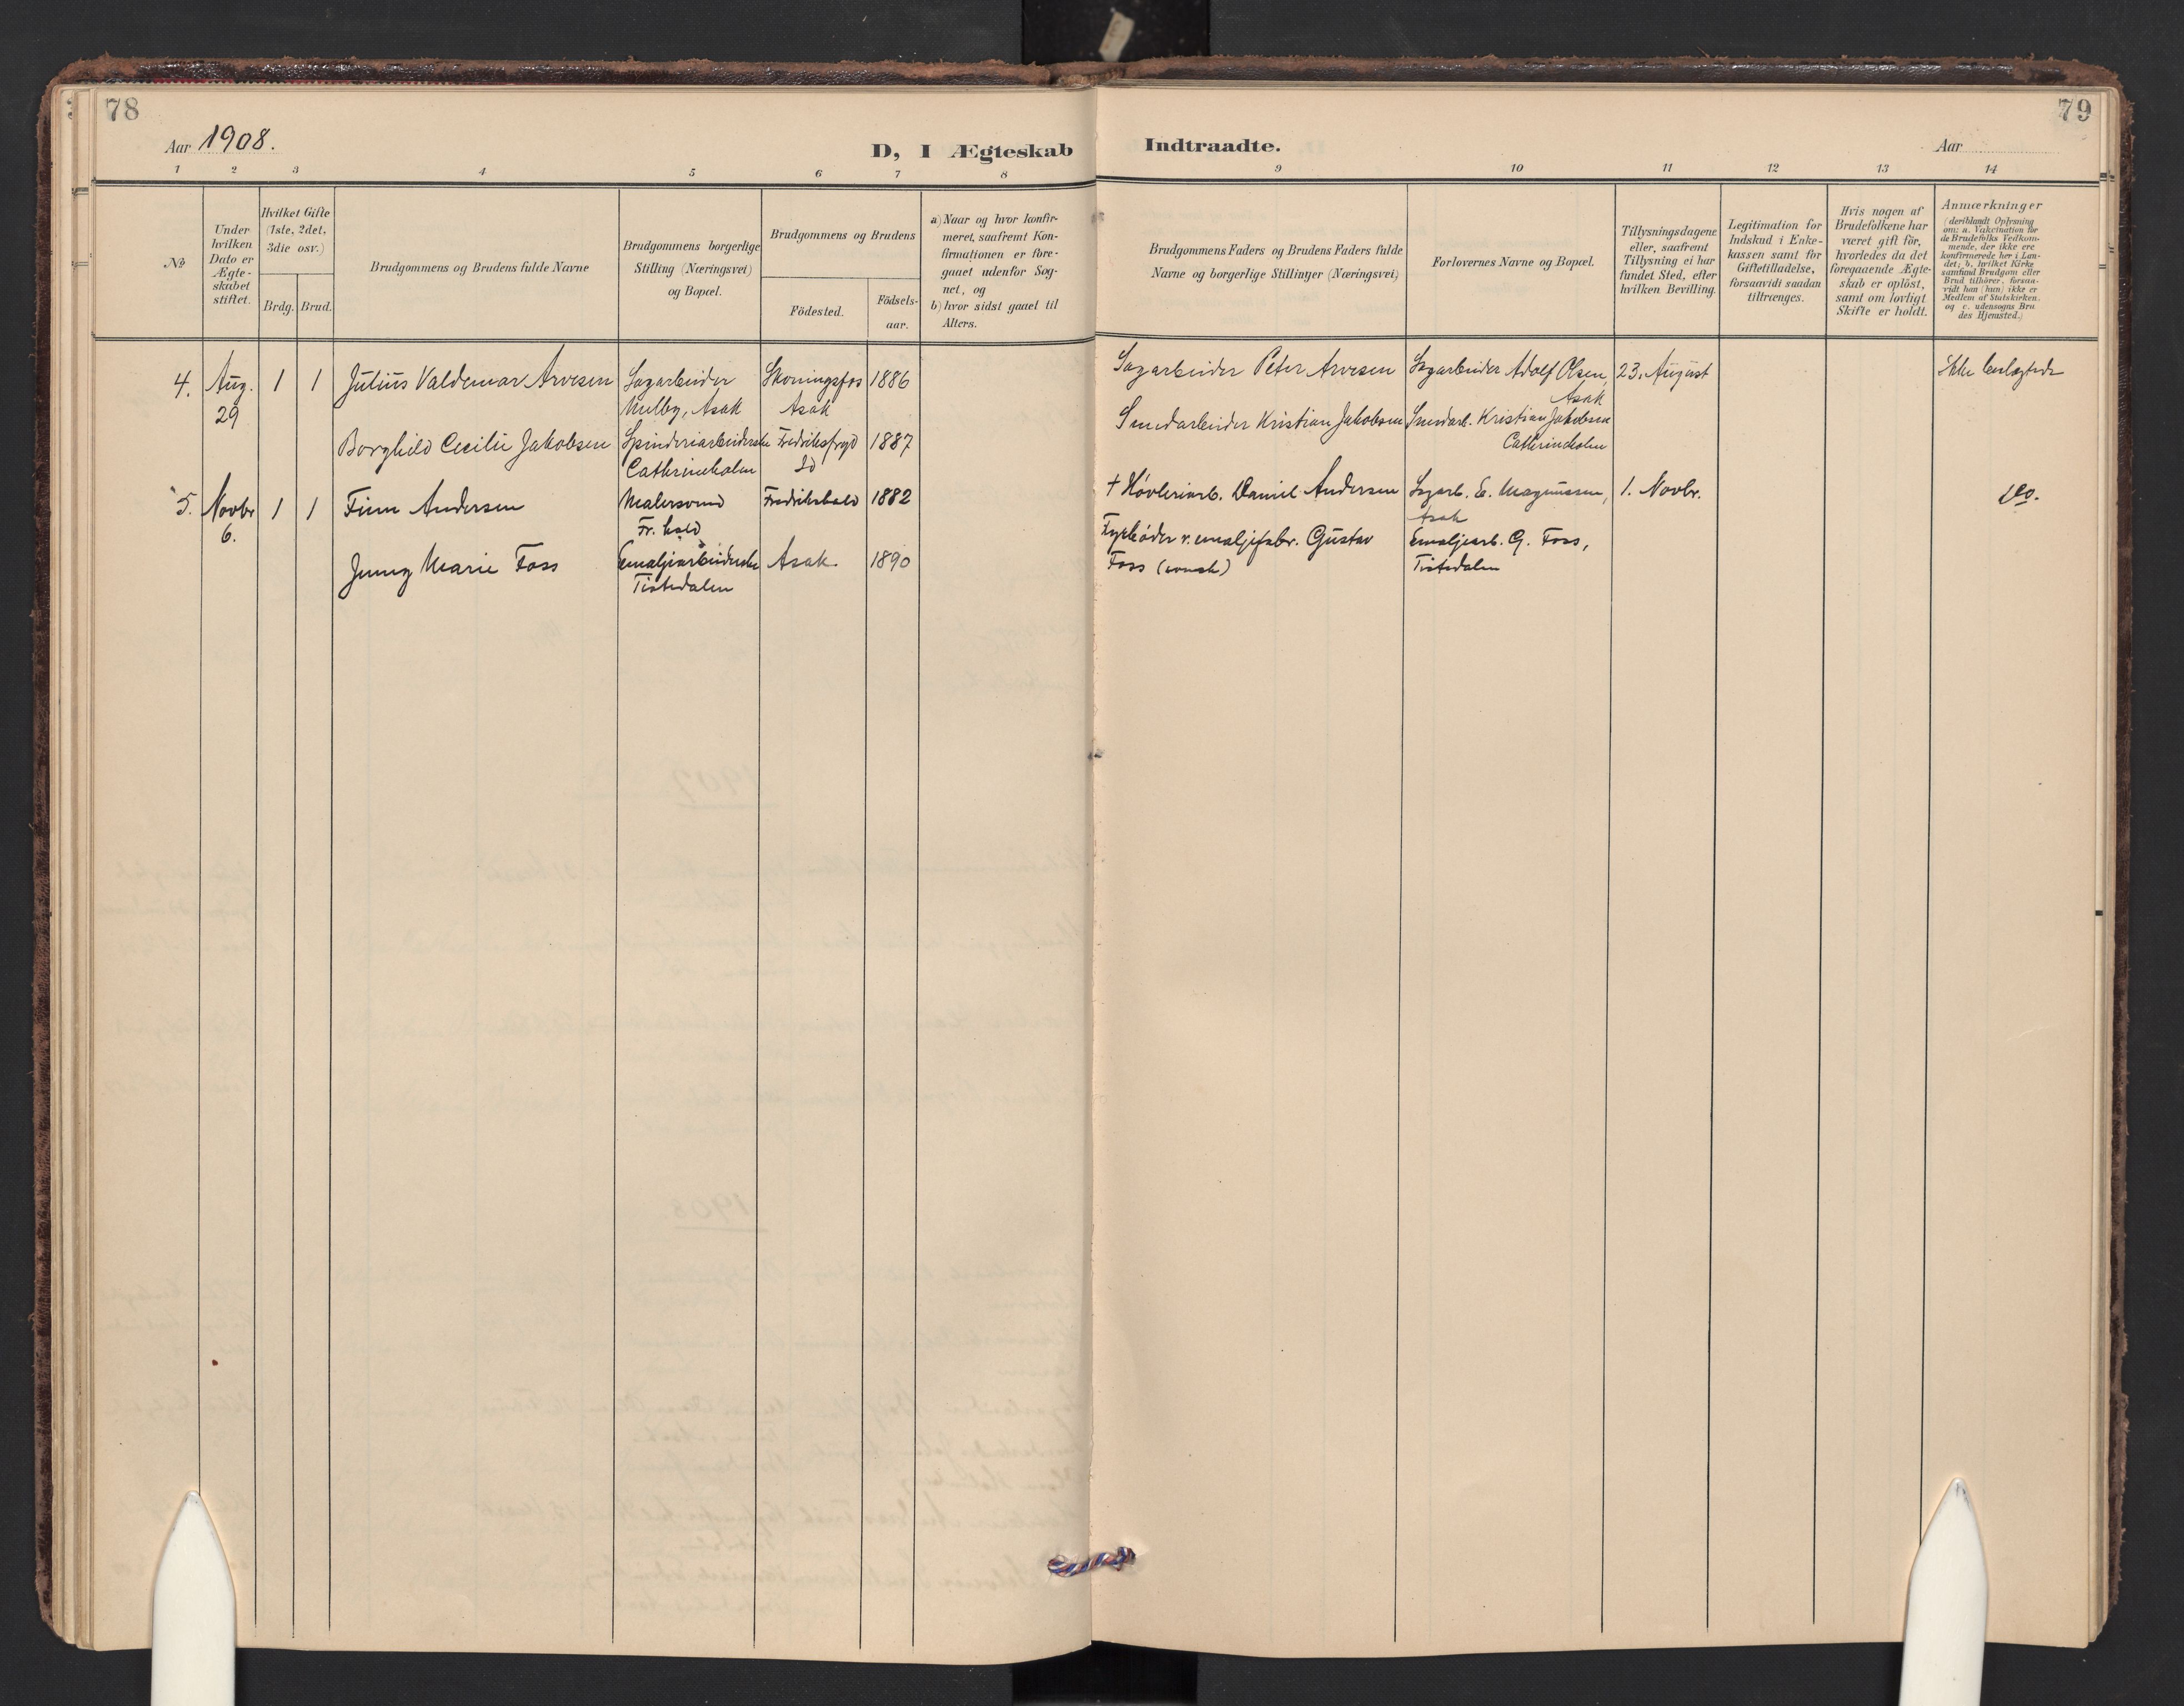 78
Aar 1908.
D, I Ægteskab
1 2 3 4 5 6 7 8
№
Under hvilken Dato er Ægte-skabet stiftet.
Hvilket Gifte (1ste, 2det, 3die osv.)
Brdg. Brud.
Brudgommens og Brudens fulde Navne
Brudgommens borgerlige
Stilling (Næringsvei)
og Bopæl.
Brudgommens og Brudens
Födested.
Födsels-
aar.
a) Naar og hvor konfir-
meret, saafremt Kon-
firmationen er fore-
gaaet udenfor Sog-
net, og
b) hvor sidst gaaet til
Alters.
4. Aug. 1 1 Julius Valdemar Arvesen Sagarbeider Skoningsfos 1886
29 Melby, Asak Asak
Borghild Cecilie Jakobsen Spinderiarbeiderske Fredriksfryd 1887
Cathrineholm
5. Novbr 1 1 Finn Andersen Malersvend Fredrikshald 1882
6. Fr.hald
Jenny Marie Foss Emaljearbeiderske Asak. 1890
Tistedalen
79
Indtraadte.
Aar
9 10 11 12 13 14
Brudgommens Faders og Brudens Faders fulde
Navne og borgerlige Stillinger (Næringsvei)
Forlovernes Navne og Bopæl.
Tillysningsdagene
eller, saafremt
Tillysning ei har
fundet Sted, efter
hvilken Bevilling.
Legitimation for
Indskud i Enke-
kassen samt for
Giftetilladelse,
forsaavidt saadan
tiltrænges.
Hvis nogen af
Brudefolkene har
været gift för,
hvorledes da det
foregaaende Ægte-
skab er oplöst,
samt om lovligt
Skifte er holdt.
Anmærkninger
(deriblandt Oplysning
om: a. Vakcination for
de Brudefolks Vedkom-
mende, der ikke ere
konfirmerede her i Lan-
det; b. hvilket Kirke
samfund Brudgom eller
Brud tilhörer, forsaa-
vidt han (hun) ikke er
Medlem af Statskirken.
og c. udensogns Bru
des Hjemsted.)
Sagarbeider Peter Arvesen Sagarbeider Adolf Olsen, 23. August Ikke beslægtede
Asak
Smedarbeider Kristian Jakobsen Smedarb. Kristian Jakobsen
Cathrineholm
† Høvleriarb. Daniel Andersen Sagarb. E. Magnussen, 1. Novbr. do.
Asak
Fyrbøder v. emaljefabr. Gustav Emaljearb. G. Foss,
Foss (svensk) Tistedalen